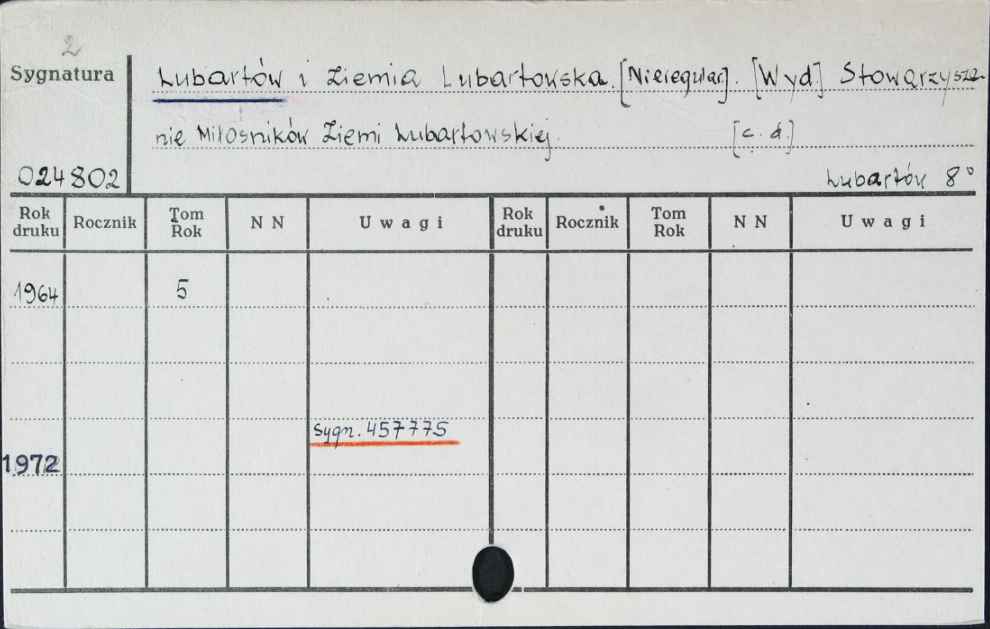 2
Sygnatura
Lubartów i Ziemia Lubartowska. [Nieregular]. [Wyd.] Stowarzysze-
nie Miłosników Ziemi Lubartowskiej. [c. d.]
024802
Lubartów 8°
Rok druku Rocznik Tom Rok N N Uwagi Rok druku Rocznik Tom Rok N N Uwagi
1964 5
Sygn. 457775
1972